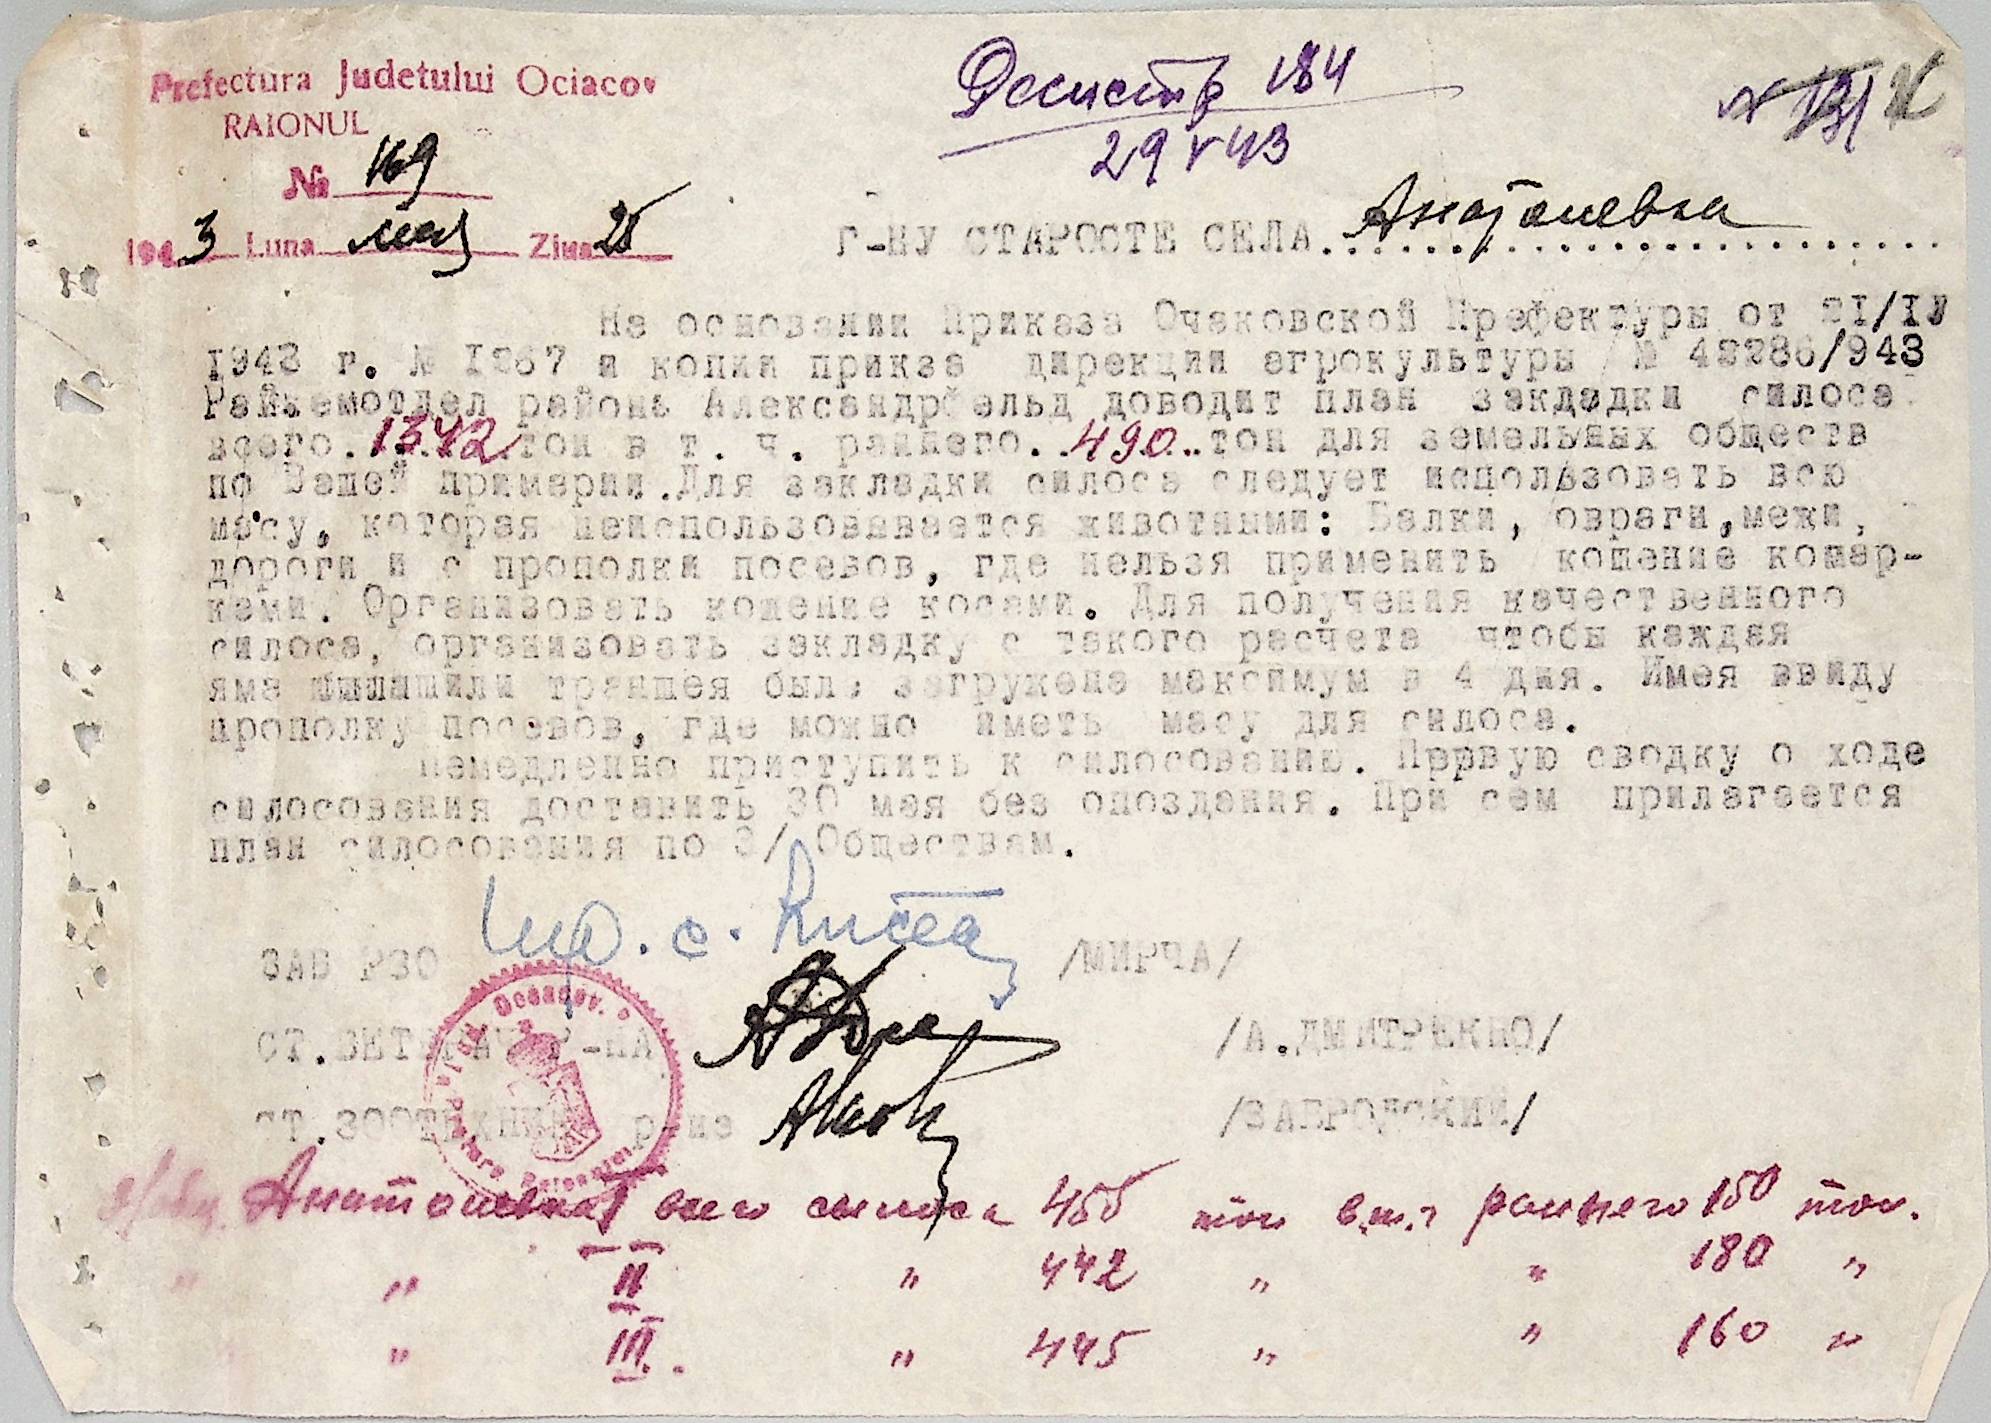 Prefectura Judetului Ociacov
RAIONUL
№ 169
1943 Luna мая Ziua 25
184
29 V 43
N 131
Г-НУ СТАРОСТЕ СЕЛА Анатолевка
На основании Приказа Очаковской Префектуры от 21/IV
1943 г. № 1367 и копии приказа дирекции агрокультуры № 43286/943
Райземотдел района Александрфельд доводит план закладки силоса
всего 1342 тон в т. ч. раннего 490 тон для земельных обществ
по Вашей примарии. Для закладки силоса следует использовать всю
масу, которая неиспользовавается животными: Балки, овраги, межи,
дороги и с прополки посевов, где нельзя применить кошение комар-
ками. Организовать кошение косами. Для получения качественного
силоса, организовать закладку с такого расчета чтобы каждая
яма или траншея была загружена максимум в 4 дня. Имея ввиду
прополку посевов, где можно иметь масу для силоса.
Немедленно приступить к силосованию. Первую сводку о ходе
силосования доставить 30 мая без опоздания. При сем прилагается
план силосования по З/ Обществам.
ЗАВ РЗО /МИРЧА/
СТ.ВЕТВРАЧ Р-НА /А.ДМИТРЕНКО/
СТ.ЗООТЕХНИК р-на /ЗАБРОДСКИЙ/
з/общ. Анатолевка I всего силоса 455 тон в т.ч раннего 150 тон.
" " II " 442 " " 180 "
" III. " 445 " " 160 "